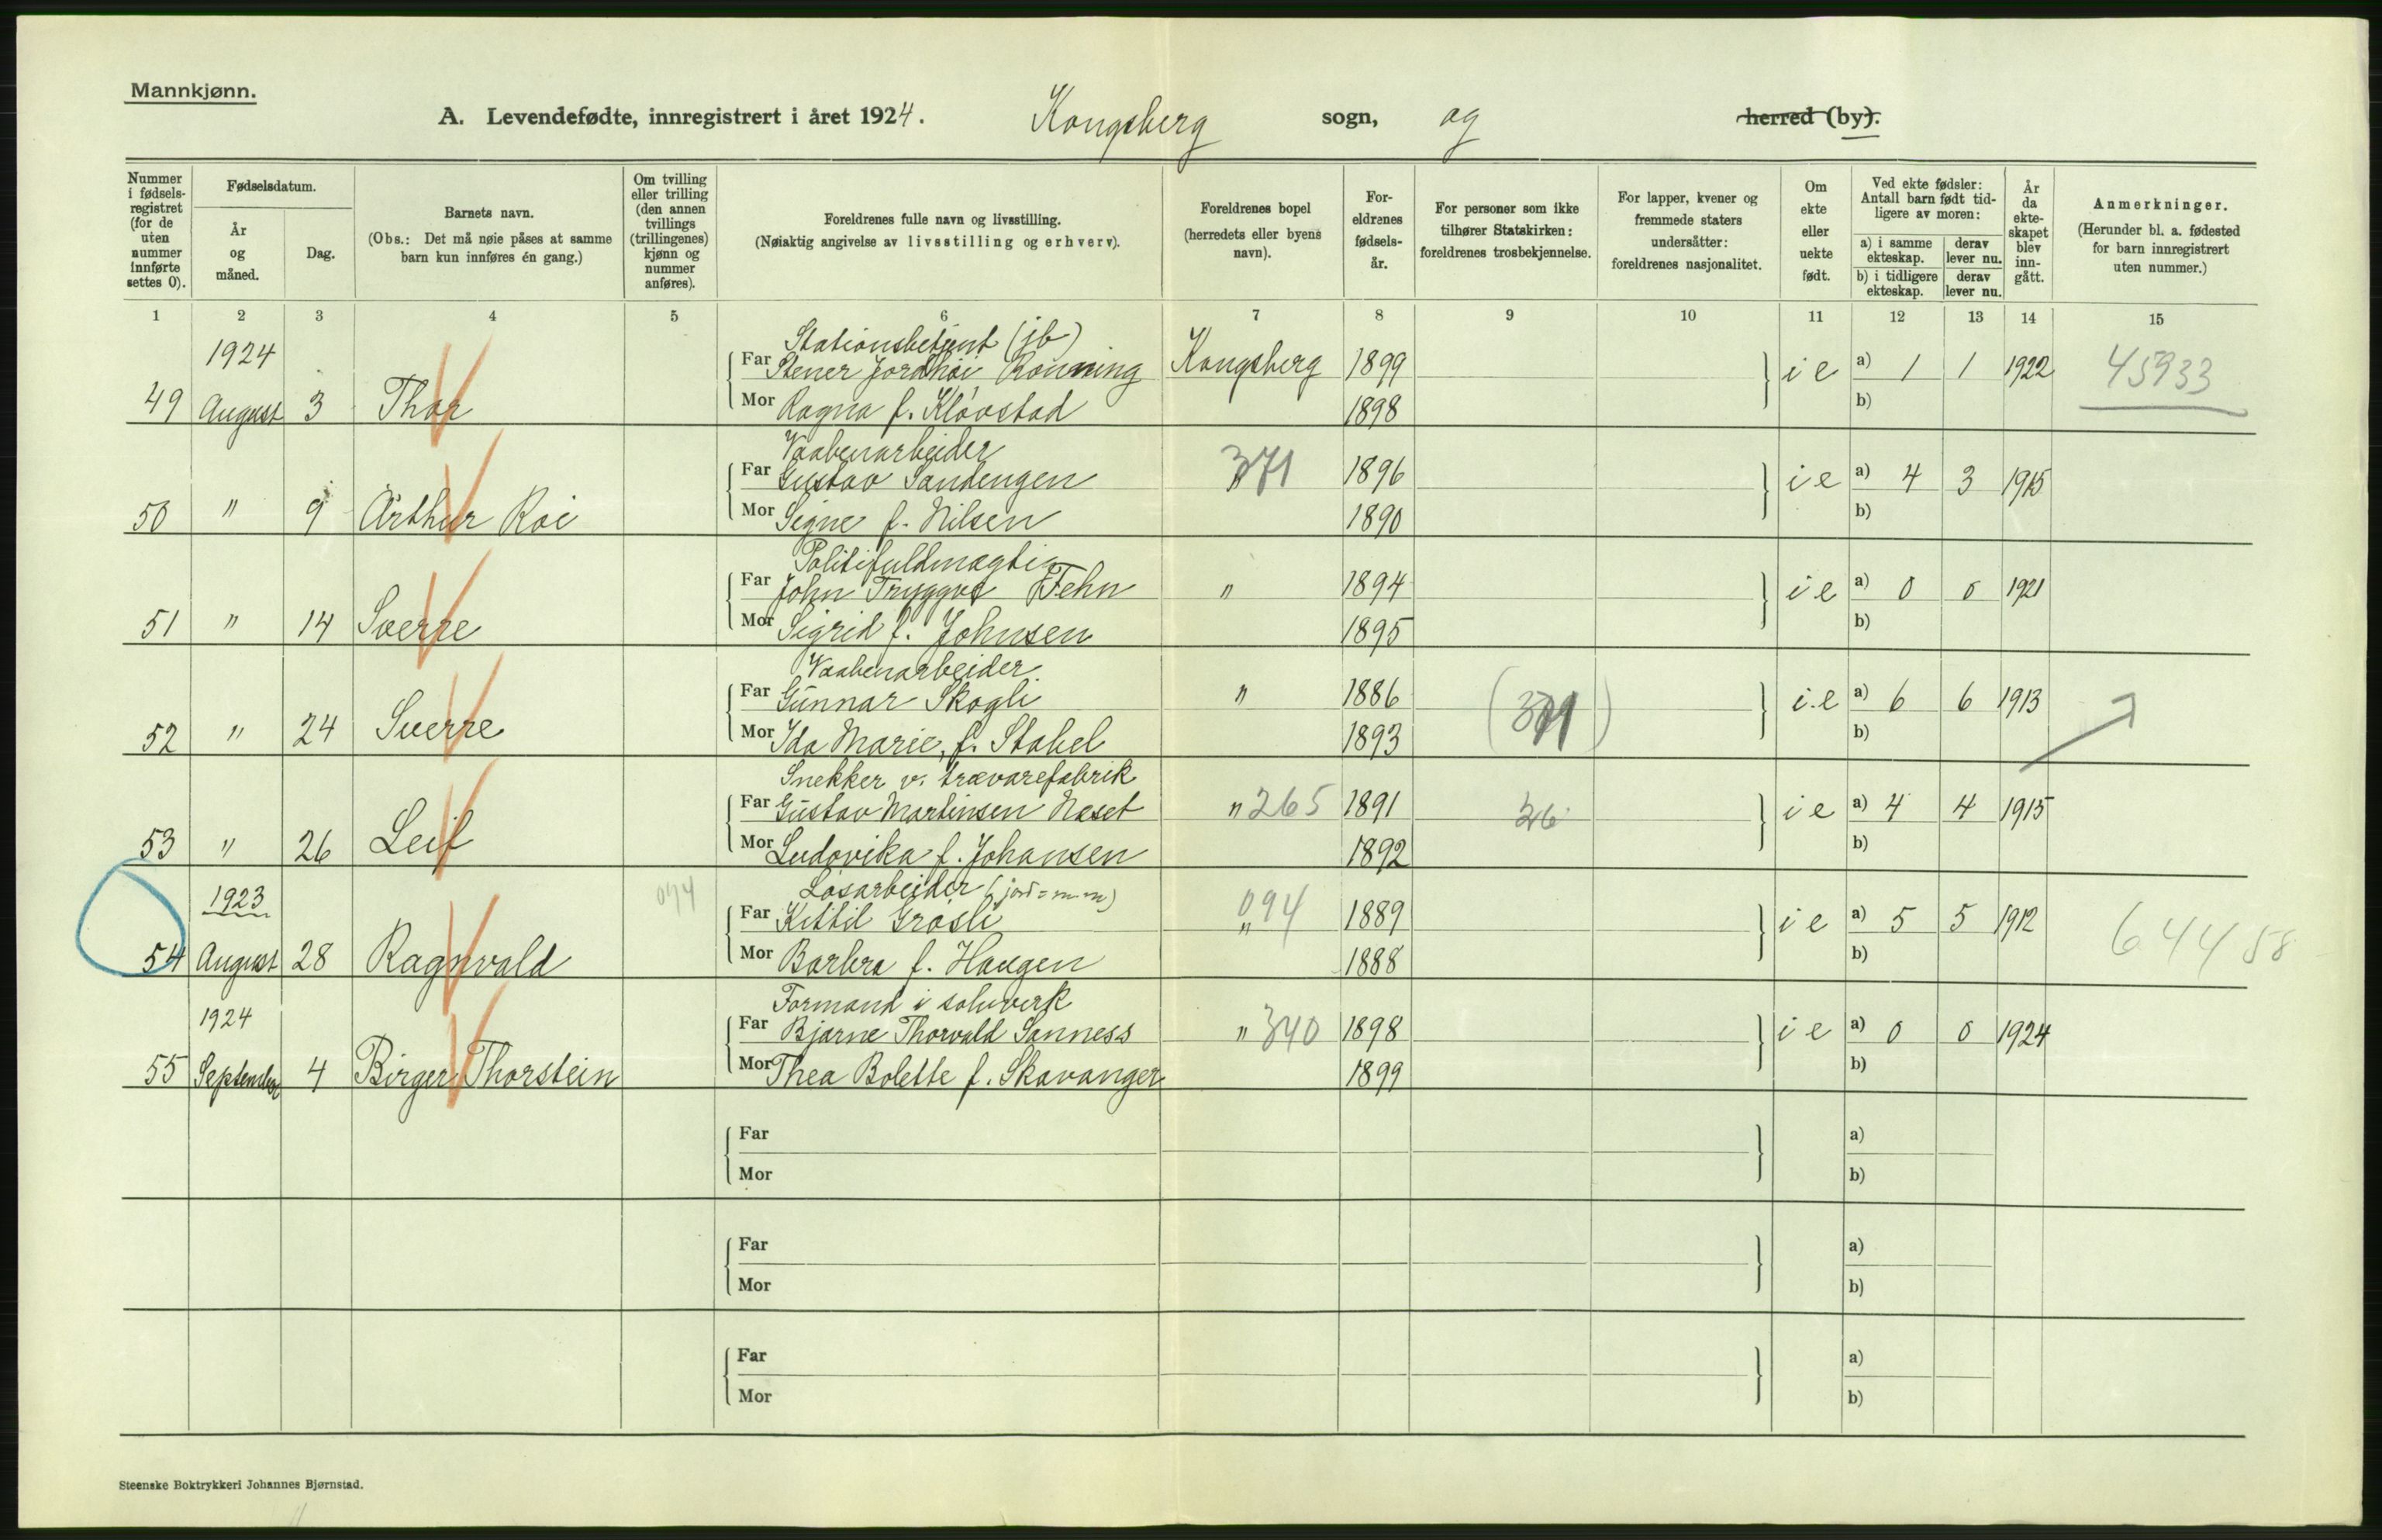 Mannkjønn.
A. Levendefødte, innregistrert i året 1924. Kongsberg sogn, og herred (by).
Nummer i fødsels-registret (for de uten nummer innførte settes 0).
Fødselsdatum.
År og måned.
Dag.
Barnets navn.
(Obs.: Det må nøie påses at samme barn kun innføres én gang.)
Om tvilling eller trilling (den annen tvillings (trillingenes) kjønn og nummer anføres).
Foreldrenes fulle navn og livsstilling.
(Nøiaktig angivelse av livsstilling og erhverv).
Foreldrenes bopel (herredets eller byens navn).
For-eldrenes fødsels-år.
For personer som ikke tilhører Statskirken: foreldrenes trosbekjennelse.
For lapper, kvener og fremmede staters undersåtter: foreldrenes nasjonalitet.
Om ekte eller uekte født.
Ved ekte fødsler: Antall barn født tid-ligere av moren:
a) i samme ekteskap.
derav lever nu.
b) i tidligere ekteskap.
derav lever nu.
År da ekte-skapet blev inn-gått.
Anmerkninger.
(Herunder bl. a. fødested for barn innregistrert uten nummer.)
1 2 3 4 5 6 7 8 9 10 11 12 13 14 15
1924 Stationsbetjent (jb)
Far Stener Jordhøi Rønning Kongsberg 1899 i e a) 1 1 1922 45933
49 August 3 Thor Mor Ragna f. Kløvstad 1898 b)
Vaabenarbeider
Far Gustav Sandengen " 371 1896 i e a) 4 3 1915
50 " 9 Arthur Roi Mor Signe f. Nilsen 1890 b)
Politifuldmægtig
Far John Tryggve Fehn " 1894 i e a) 0 0 1921
51 " 14 Sverre Mor Sigrid f. Johnsen 1895 b)
Vaabenarbeider
Far Gunnar Skogli " 1886 (371) i e a) 6 6 1913
52 " 24 Sverre Mor Ida Marie, f. Stabel 1893 b)
Snekker v. trævarefabrik
Far Gustav Martinsen Næset " 265 1891 26 i e a) 4 4 1915
53 " 26 Leif Mor Ludovika f. Johansen 1892 b)
1923 094 Løsarbeider (jord = m m)
Far Kittil Grosli " 094 1889 i e a) 5 5 1912 64458
54 August 28 Ragnvald Mor Barbra f. Haugen 1888 b)
1924 Formand i sølvverk
Far Bjarne Thorvald Sanness " 340 1898 i e a) 0 0 1924
55 September 4 Birger Thorstein Mor Thea Bolette f. Skavanger 1899 b)
Far a)
Mor b)
Far a)
Mor b)
Far a)
Mor b)
Steenske Boktrykkeri Johannes Bjørnstad.